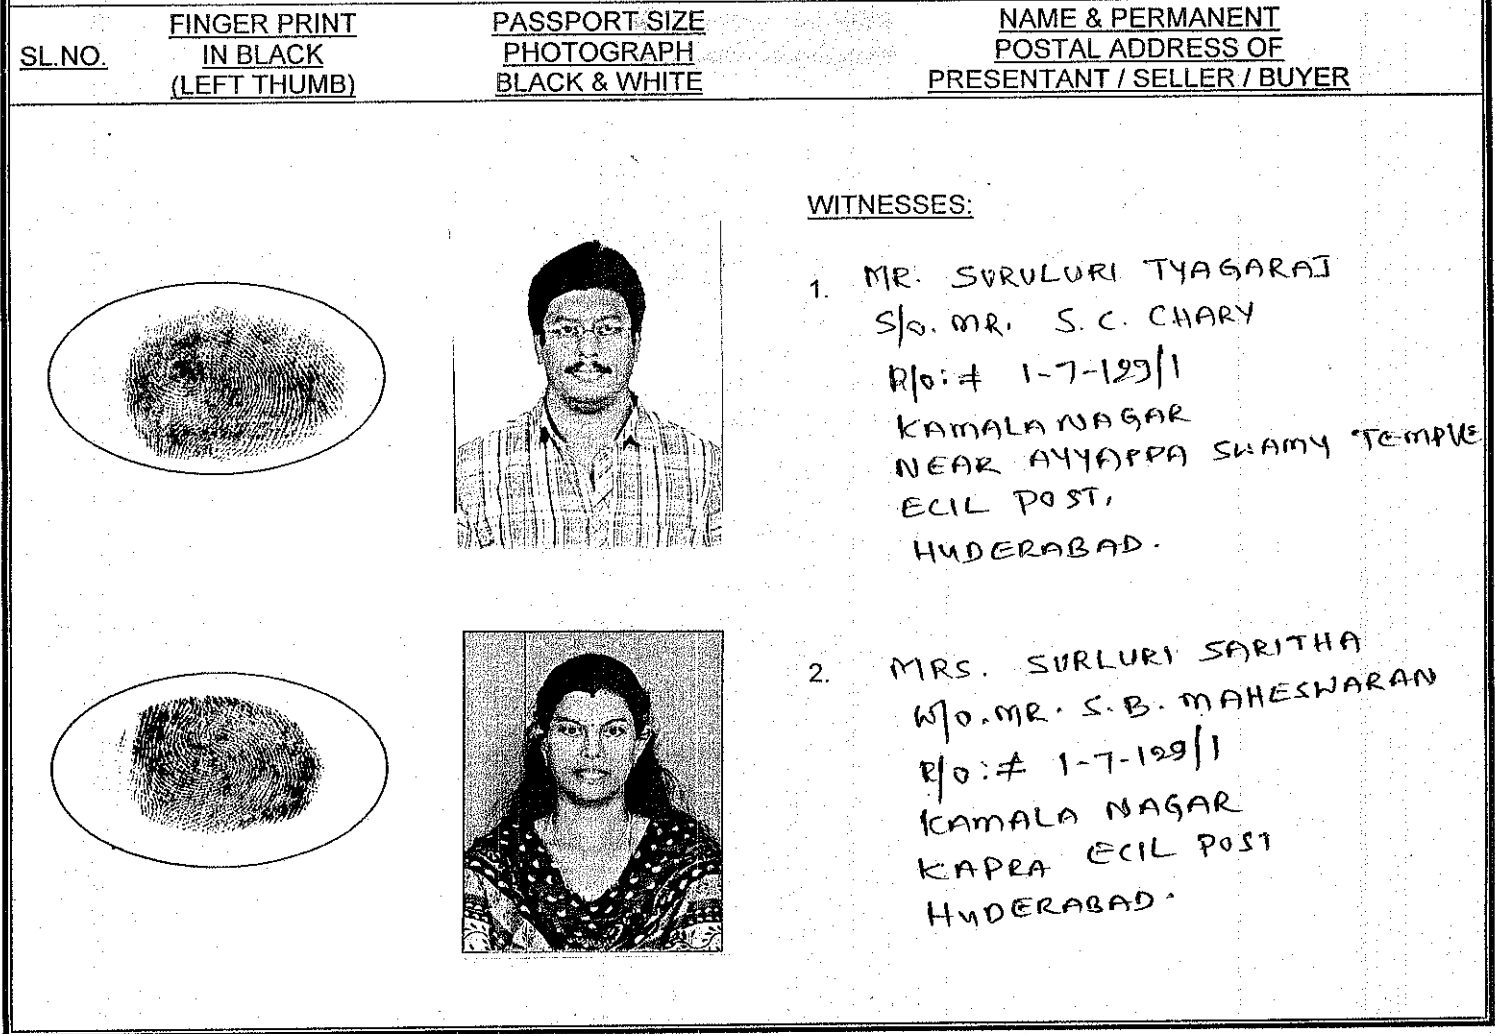 SL.NO.
FINGER PRINT
IN BLACK
(LEFT THUMB)
PASSPORT SIZE
PHOTOGRAPH
BLACK & WHITE
NAME & PERMANENT
POSTAL ADDRESS OF
PRESENTANT / SELLER / BUYER
WITNESSES:
1. MR. SURULURI TYAGARAJ
S/o. MR. S. C. CHARY
R/o: # 1-7-129/1
KAMALA NAGAR
NEAR AYYAPPA SWAMY TEMPLE
ECIL POST,
HYDERABAD.
2. MRS. SURLURI SARITHA
W/o. MR. S. B. MAHESWARAN
R/o: # 1-7-129/1
KAMALA NAGAR
KAPRA ECIL POST
HYDERABAD.